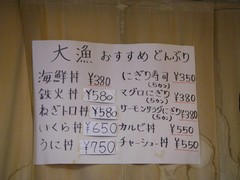 大漁 おすすめどんぶり
海鮮丼 ¥380
鉄火丼 ¥580
ねぎトロ丼 ¥580
いくら丼 ¥650
うに丼 ¥750
にぎり寿司 ¥350
(5カン)
マグロにぎり ¥380
(5カン)
サーモンサラダにぎり ¥380
(5カン)
カルビ丼 ¥550
チャーシュー丼 ¥550